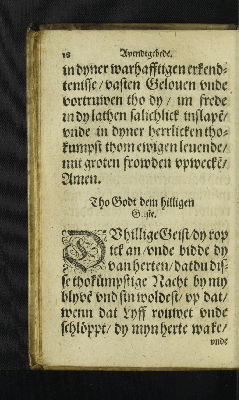 18 Avendtgebede.
in dyner warhafftigen erkend-
tenisse / vasten Gelouen vnde
vortruwen tho dy / im frede
in dy lathen salichlick inslapē /
vnde in dyner herrlicken tho-
kumpst thom ewigen leuende /
mit groten frowden vpweckē /
Amen.
Tho Godt dem hilligen
Geiste.
DV hillige Geist / dy rop
ick an / vnde bidde dy
van herten / dat du dis-
se thokümpstige Nacht by my
blyvē vnd sin woldest / vp dat /
wenn dat Lyff rouwet vnde
schlöppt / dy myn herte wake /
vnde